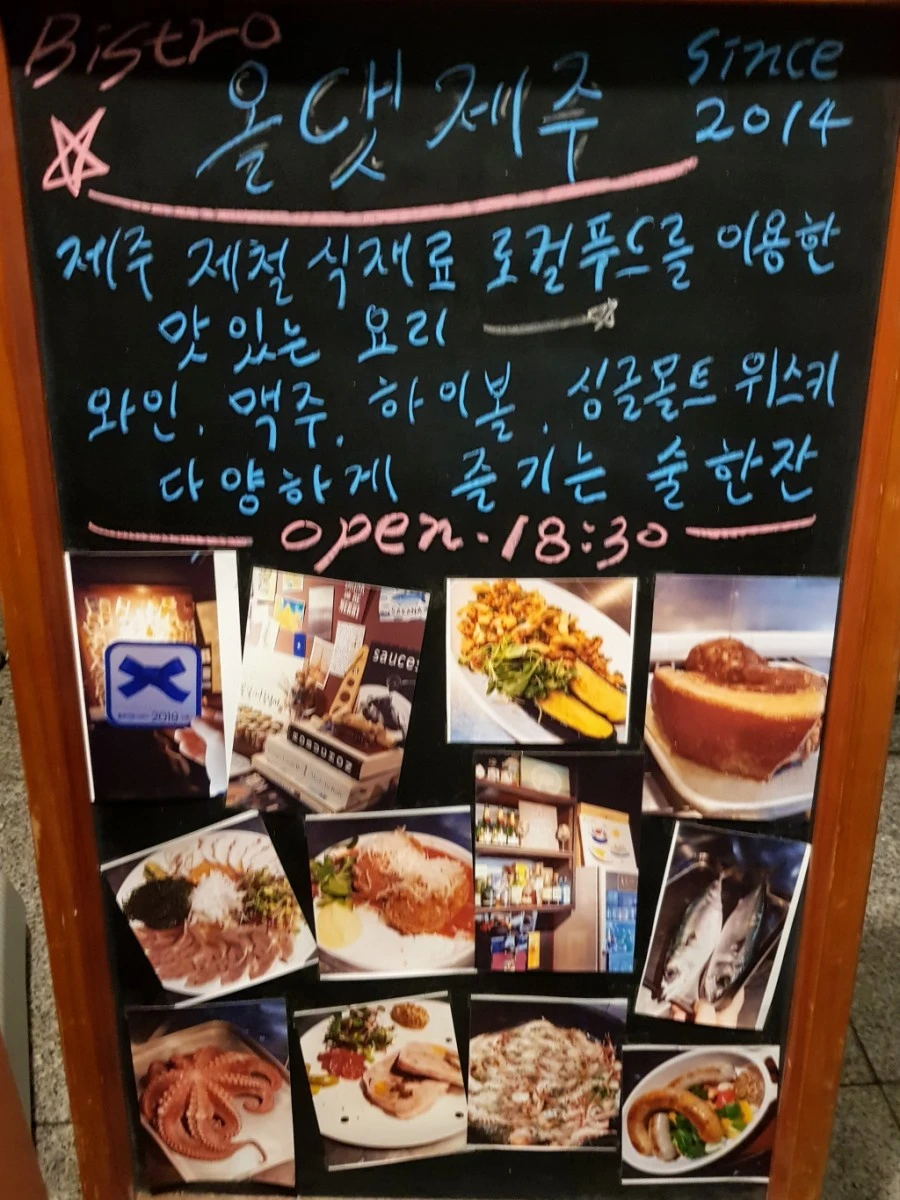 Bistro
올댓제주
since
2014
제주 제철 식재료 로컬푸드를 이용한
맛있는 요리
와인, 맥주, 하이볼, 싱글몰트 위스키
다양하게 즐기는 술 한잔
open - 18:30
2019
sauces